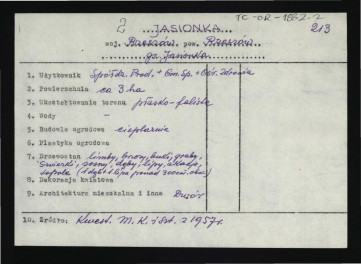 TC-OR-1862-2
2 ...JASIONKA... 213
woj. Rzeszów pow. Rzeszów
gr. Jasionka
1. Użytkownik Spółdz. Prod. + Gm. Sp. + Ośr. Zdrowia
2. Powierzchnia ca 3 ha
3. Ukształtowanie terenu płasko-faliste
4. Wody -
5. Budowle ogrodowe cieplarnia
6. Plastyka ogrodowa
7. Drzewostan limby, brzozy, buki, graby,
świerki, sosny, dęby, lipy, akacje,
(1 dąb + 1 lipa ponad 300 cm obw.)
8. Dekoracja kwiatowa
9. Architektura mieszkalna i inne Dwór
10. Źródło: Kwest. M. K. i Szt. z 1957 r.